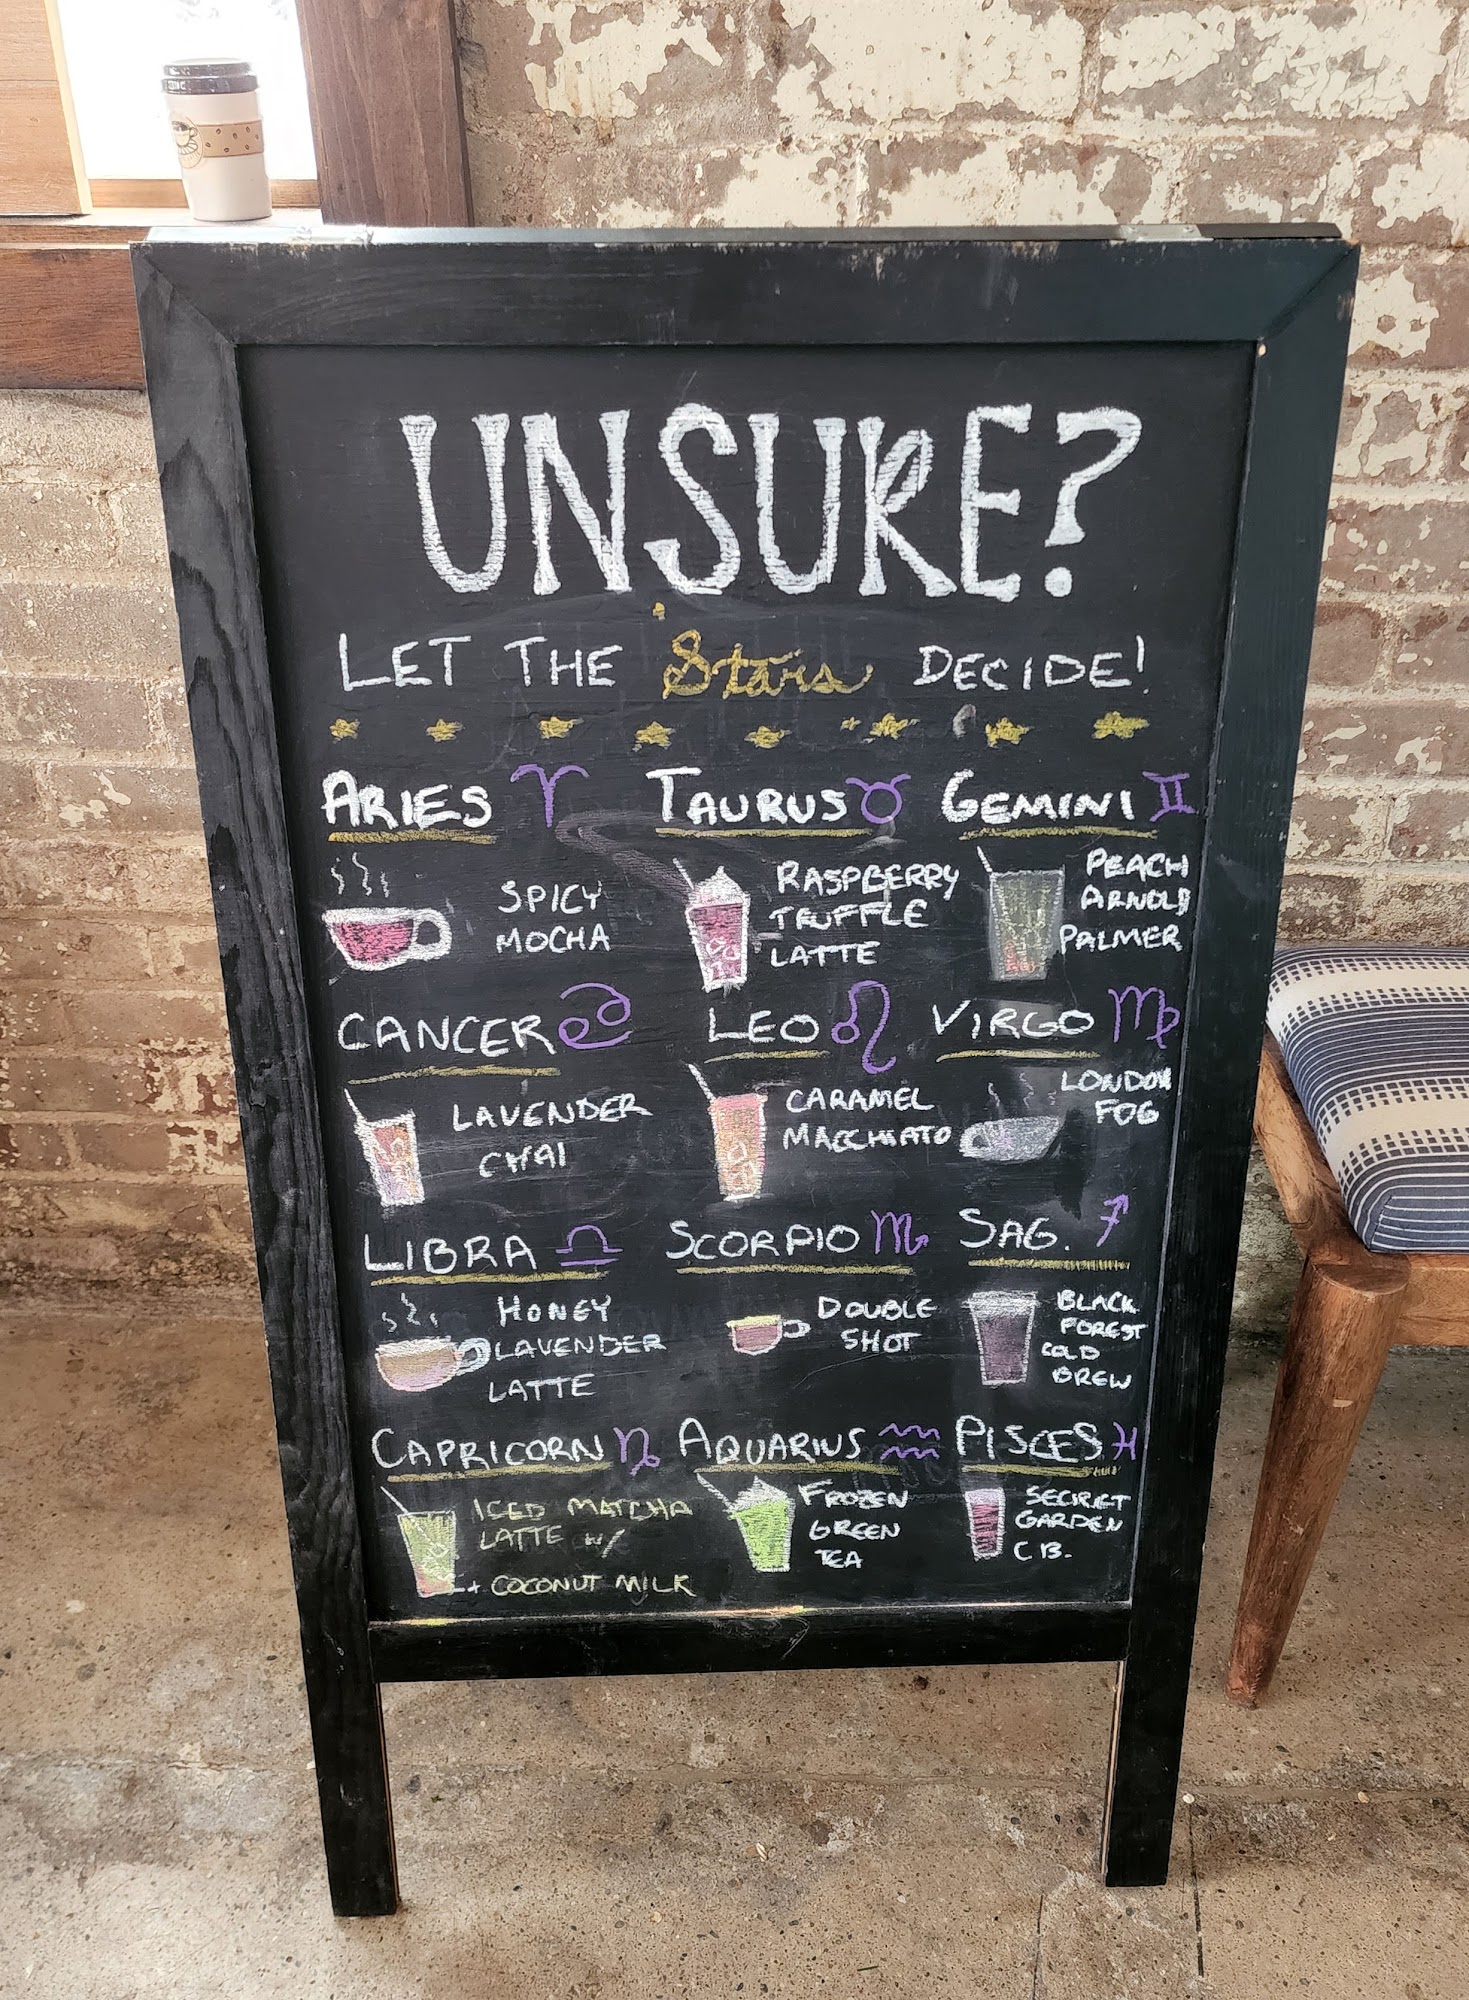 UNSURE?
LET THE Stars DECIDE!
ARIES
SPICY
MOCHA
TAURUS
RASPBERRY
TRUFFLE
LATTE
GEMINI
PEACH
ARNOLD
PALMER
CANCER
LAVENDER
CHAI
LEO
CARAMEL
MACCHIATO
VIRGO
LONDON
FOG
LIBRA
HONEY
LAVENDER
LATTE
SCORPIO
DOUBLE
SHOT
SAG.
BLACK
FOREST
COLD
BREW
CAPRICORN
ICED MATCHA
LATTE W/
+ COCONUT MILK
AQUARIUS
FROZEN
GREEN
TEA
PISCES
SECRET
GARDEN
CB.